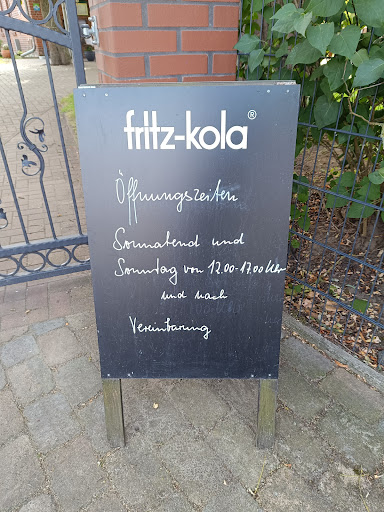 fritz-kola®
Öffnungszeiten
Sonnabend und
Sonntag von 12.00-17.00 Uhr
und nach
Vereinbarung